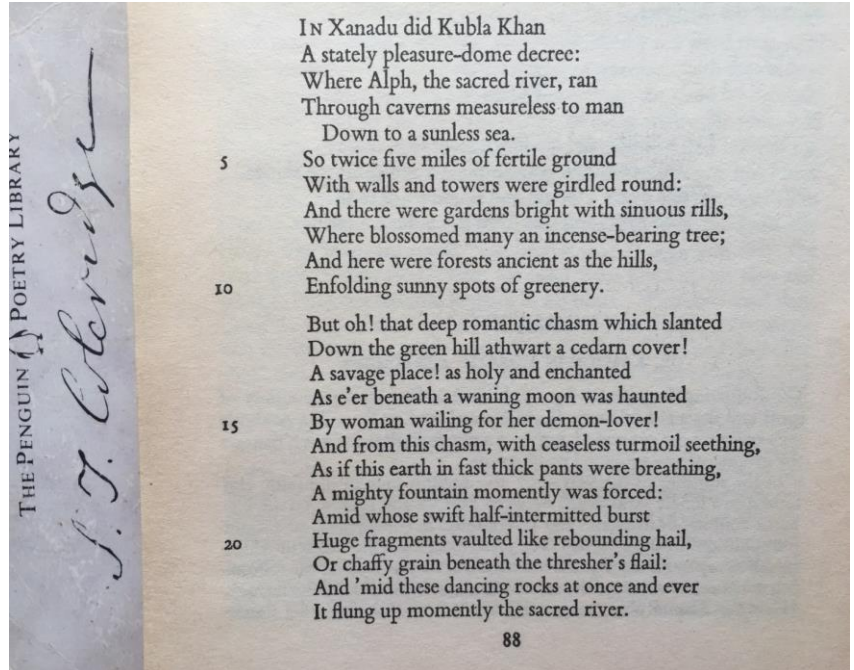 THE PENGUIN POETRY LIBRARY
S. T. Coleridge
IN Xanadu did Kubla Khan
A stately pleasure-dome decree:
Where Alph, the sacred river, ran
Through caverns measureless to man
Down to a sunless sea.
5 So twice five miles of fertile ground
With walls and towers were girdled round:
And there were gardens bright with sinuous rills,
Where blossomed many an incense-bearing tree;
And here were forests ancient as the hills,
10 Enfolding sunny spots of greenery.
But oh! that deep romantic chasm which slanted
Down the green hill athwart a cedarn cover!
A savage place! as holy and enchanted
As e'er beneath a waning moon was haunted
15 By woman wailing for her demon-lover!
And from this chasm, with ceaseless turmoil seething,
As if this earth in fast thick pants were breathing,
A mighty fountain momently was forced:
Amid whose swift half-intermitted burst
20 Huge fragments vaulted like rebounding hail,
Or chaffy grain beneath the thresher's flail:
And 'mid these dancing rocks at once and ever
It flung up momently the sacred river.
88